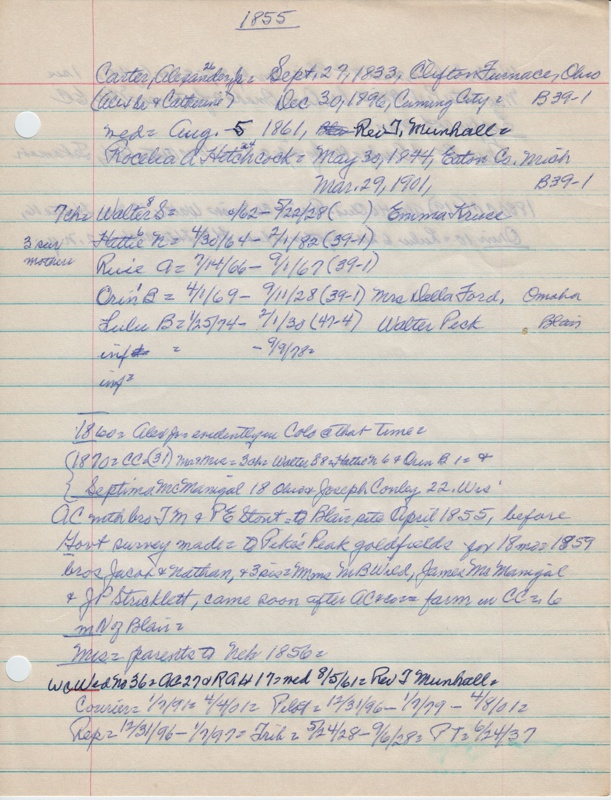 1855
Carter, Alexander Jr = Sept. 27, 1833, Clifton Furnace, Ohio
26
(Alex Sr & Catherine) Dec 30, 1896, Cuming City = B39-1
med = Aug. 5 1861, Rev T. Munhall =
Rocelia A Hotchcock = May 30, 1844, Eaton Co. Mich
24
Mar. 29, 1901, B39-1
7 chr Walter S = /62 - 5/22/28 ( ) Emma Kruse
8
3 sur Hattie N = 4/30/64 - 2/1/82 (39-1)
6
mother
Rosie A = 7/14/66 - 9/1/67 (39-1)
Orin B = 4/1/69 - 9/11/28 (39-1) Mrs Della Ford, Omaha
1
Lulu B = 1/25/74 - 2/1/30 (47-4) Walter Peck Blair
inf = - 9/9/78 =
inf =
1860 = Alex Jr evidently in Colo @ that time =
(1870 = CC = (31) Mr & Mrs = 3 chr = Walter S 8 & Hattie N 6 & Orin B 1 = &
Septima McManigal 18 Ohio & Joseph Conley 22. Wis
AC with bro J M & P E Stout = to Blair site April 1855, before
Govt survey made = to Pike's Peak goldfields for 18 mo = 1859
bros Jacob & Nathan, & 3 sis = Mmes M B Wild, James McManigal
& J P Stricklett, came soon after AC & co = farm in CC = 6
m N of Blair =
Mrs = parents to Neb 1856 =
WC Wed No 36 = AC 27 & RAH 17 = med 8/5/61 = Rev T Munhall =
Courier = 1/7/97 = 4/4/01 = Pilot = 12/31/96 - 1/7/79 - 4/8/01 =
Rep = 12/31/96 - 1/7/97 = Trib = 5/24/28 - 9/6/28 = PT = 6/24/37